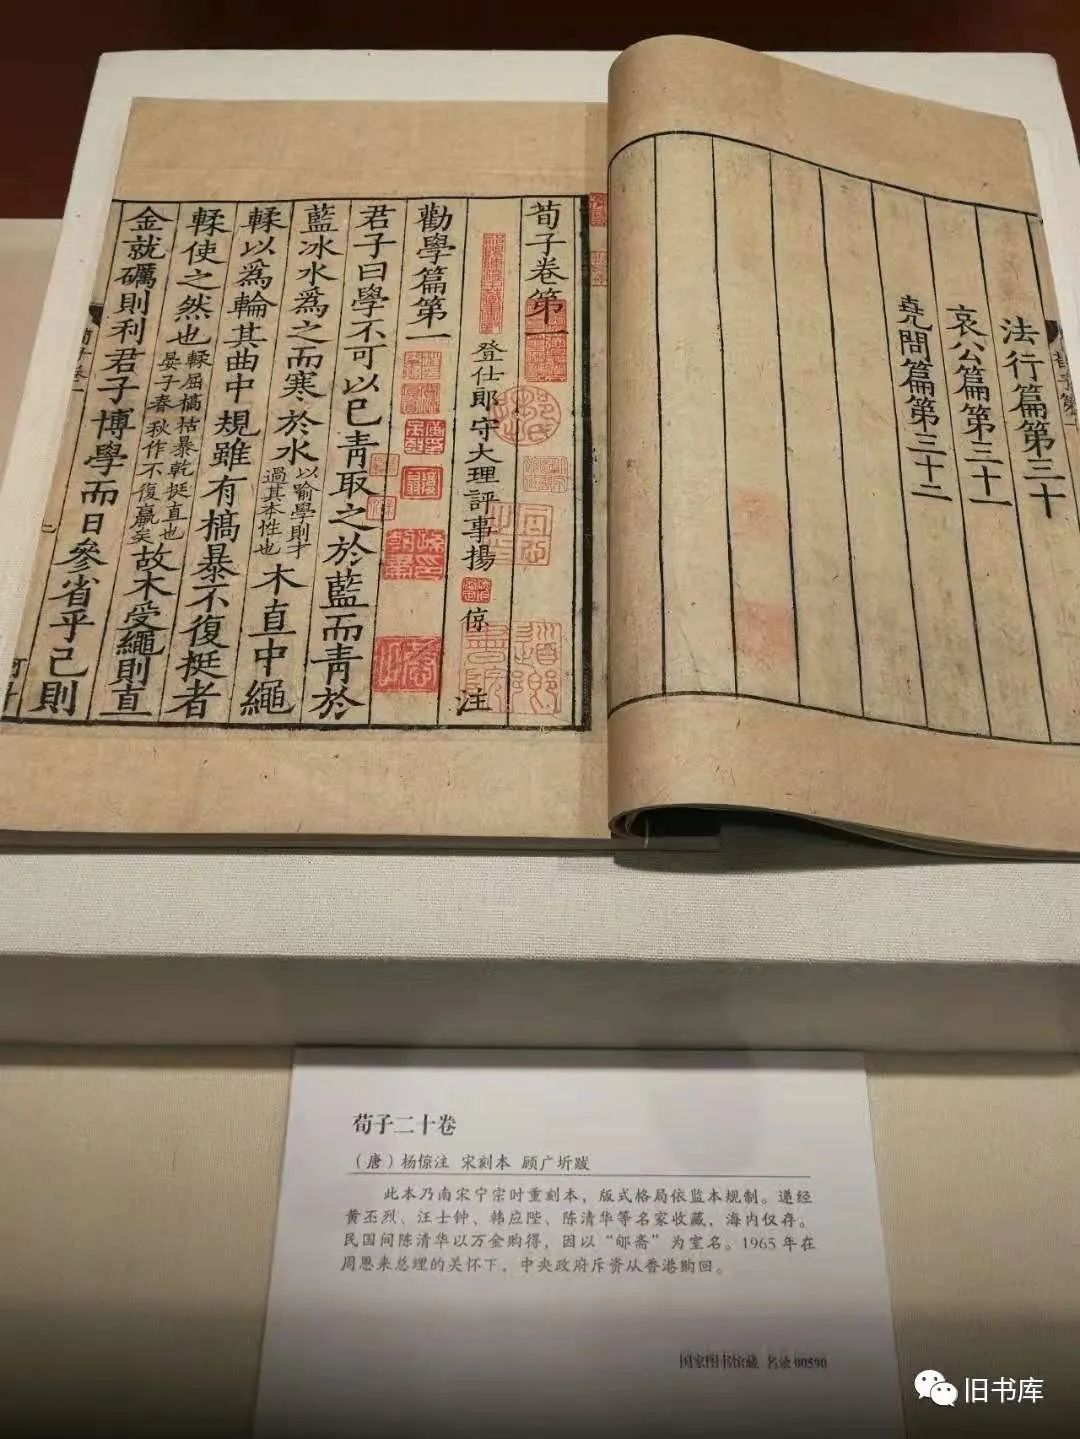 法行篇第三十
哀公篇第三十一
堯問篇第三十二
荀子卷第一
登仕郎守大理評事揚倞注
勸學篇第一
君子曰學不可以已青取之於藍而青於
藍冰水為之而寒於水以喻學則才過其本性也木直中繩
輮以為輪其曲中規雖有槁暴不復挺者
輮使之然也輮屈槁枯暴乾挺直也晏子春秋作不復贏矣故木受繩則直
金就礪則利君子博學而日參省乎己則
荀子二十卷
（唐）杨倞注 宋刻本 顾广圻跋
此本乃南宋宁宗时重刻本，版式格局依监本规制。递经
黄丕烈、汪士钟、韩应陛、陈清华等名家收藏，海内仅存。
民国间陈清华以万金购得，因以“郇斋”为室名。1965年在
周恩来总理的关怀下，中央政府斥资从香港购回。
国家图书馆藏 名录00590
旧书库